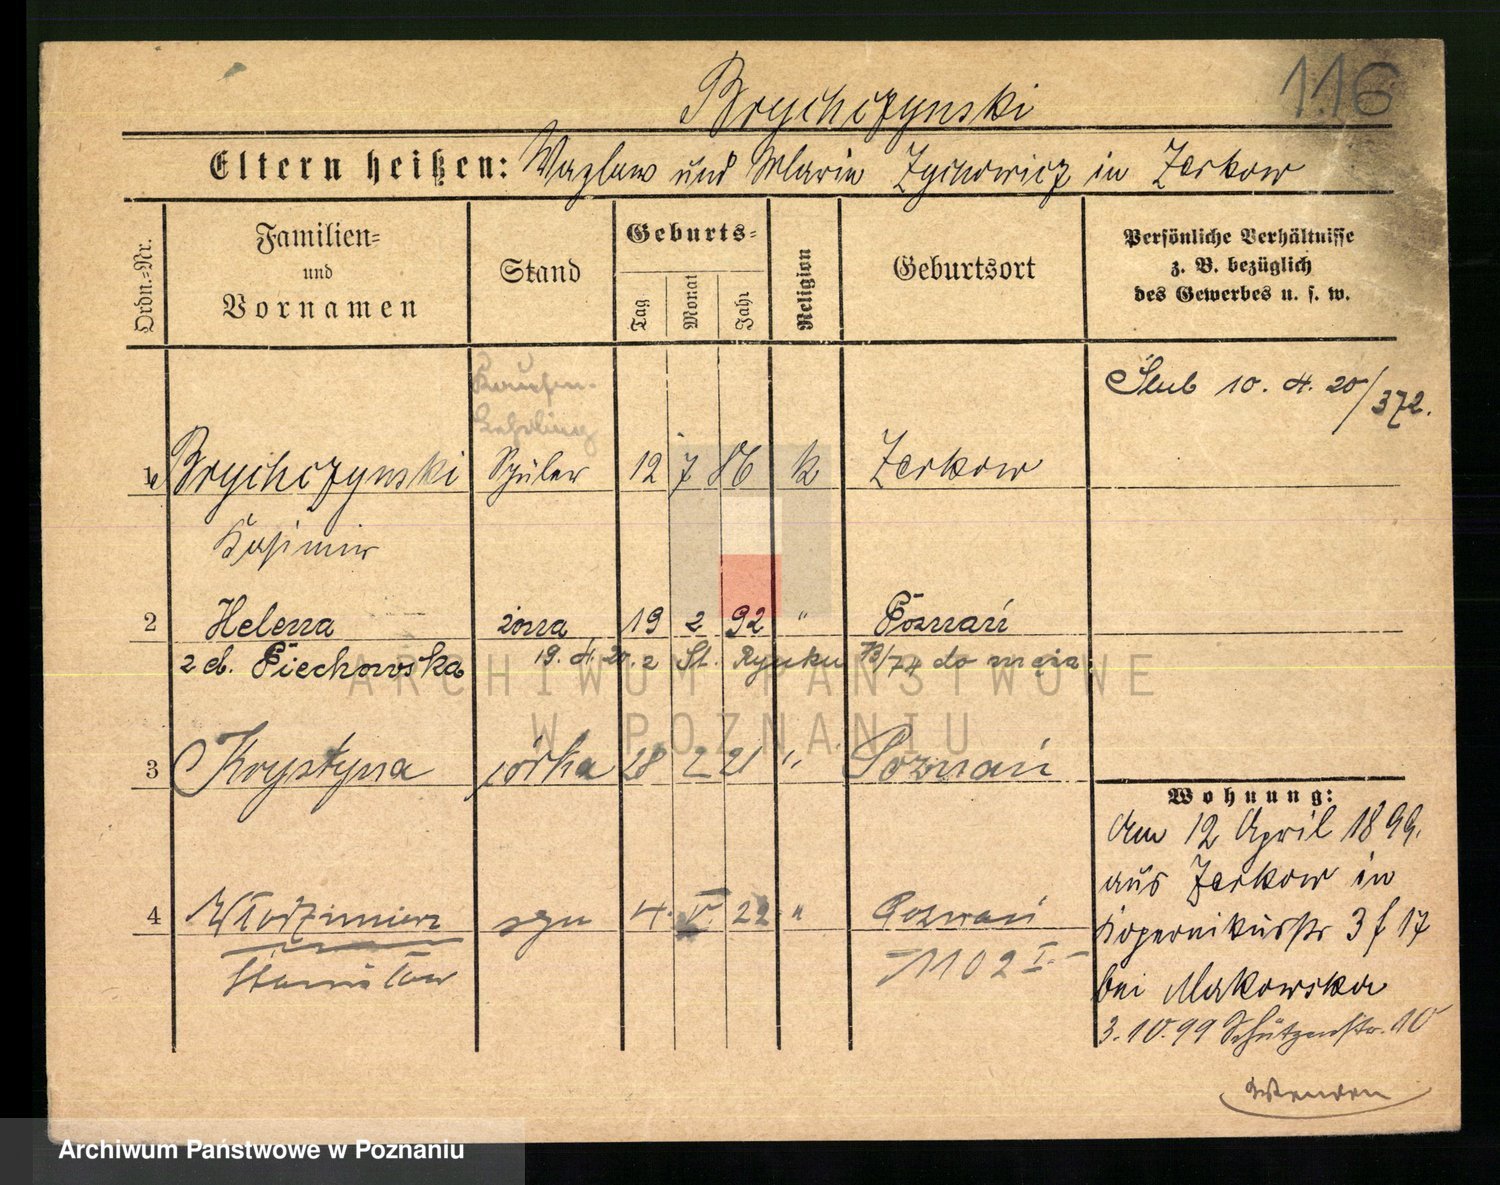 116
Brychczynski
Eltern heißen: Wazlaw und Maria Zychowicz in Zerkow
Ordn.-Nr.
Familien-
und
Vornamen
Stand
Geburts-
Tag
Monat
Jahr
Religion
Geburtsort
Persönliche Verhältnisse
z. B. bezüglich
des Gewerbes u. s. w.
Kaufm.-
Lehrling
Ślub 10. 4. 20/372.
1 Brychczynski Schüler 12 7 86 k Zerkow
Kasimir
2 Helena żona 19 2 92 " Poznań
z d. Piechowska 19. 4. 20. z St. Rynku 73/74 do męża
3 Krystyna córka 28 2 21 " Poznań
4 Włodzimierz syn 4. V. 22 " Poznań
Stanisław
1102 I.
Wohnung:
Am 12 April 1899.
aus Zerkow in
Kopernikusstr 3 f 17
bei Makowska
3.10.99 Schützenstr. 10
Wenden
ARCHIWUM PAŃSTWOWE
W POZNANIU
Archiwum Państwowe w Poznaniu